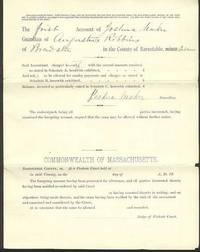 The First Account of Joshua
Guardian of Augustus Robbins
of in the County of Barnstable, minor
Said Accountant charges himself with the several amounts received
as stated in Schedule A, herewith exhibited, $
And asks to be allowed for sundry payments and charges as stated in
Schedule B, herewith exhibited, $
Balance, invested as particularly stated in Schedule C, herewith exhibited, $
Joshua Guardian.
The undersigned, being all parties interested, having
examined the foregoing account, request that the same may be allowed without further notice.
COMMONWEALTH OF MASSACHUSETTS.
BARNSTABLE COUNTY, ss. At a Probate Court held at
in said County, on the day of A. D. 18
The foregoing account having been presented for allowance, and all parties interested therein
having been notified as ordered by said Court
or having assented thereto in writing, and no
objections being made thereto, and the same having been verified by the oath of the accountant
and examined and considered by the Court,
it is ordered that the same be allowed and recorded.
Judge of Probate Court.